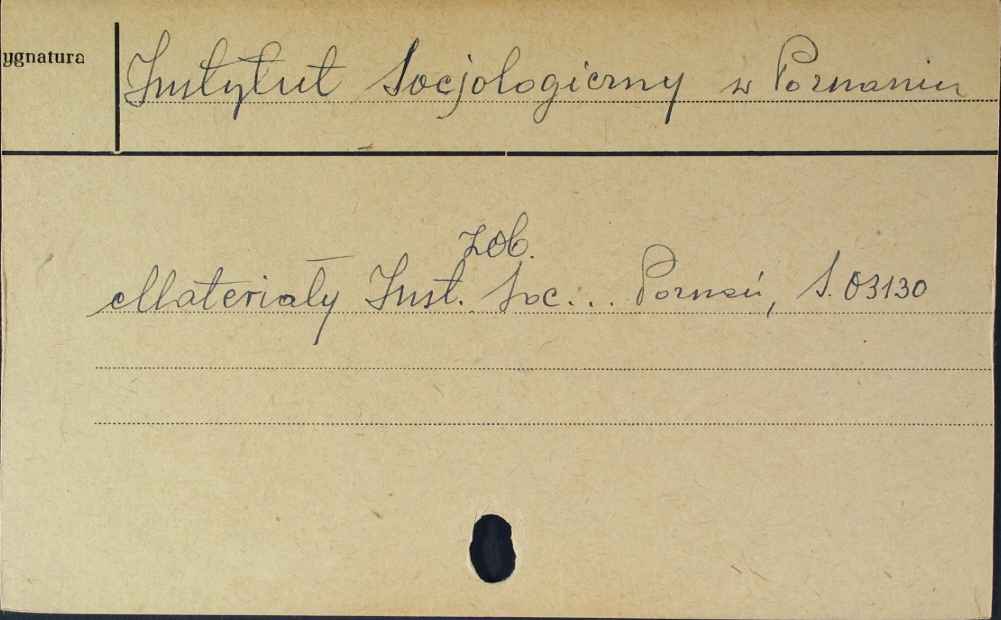 ygnatura
Instytut Socjologiczny w Poznaniu
zob.
Materiały Inst. Soc... Poznań, S. 03130